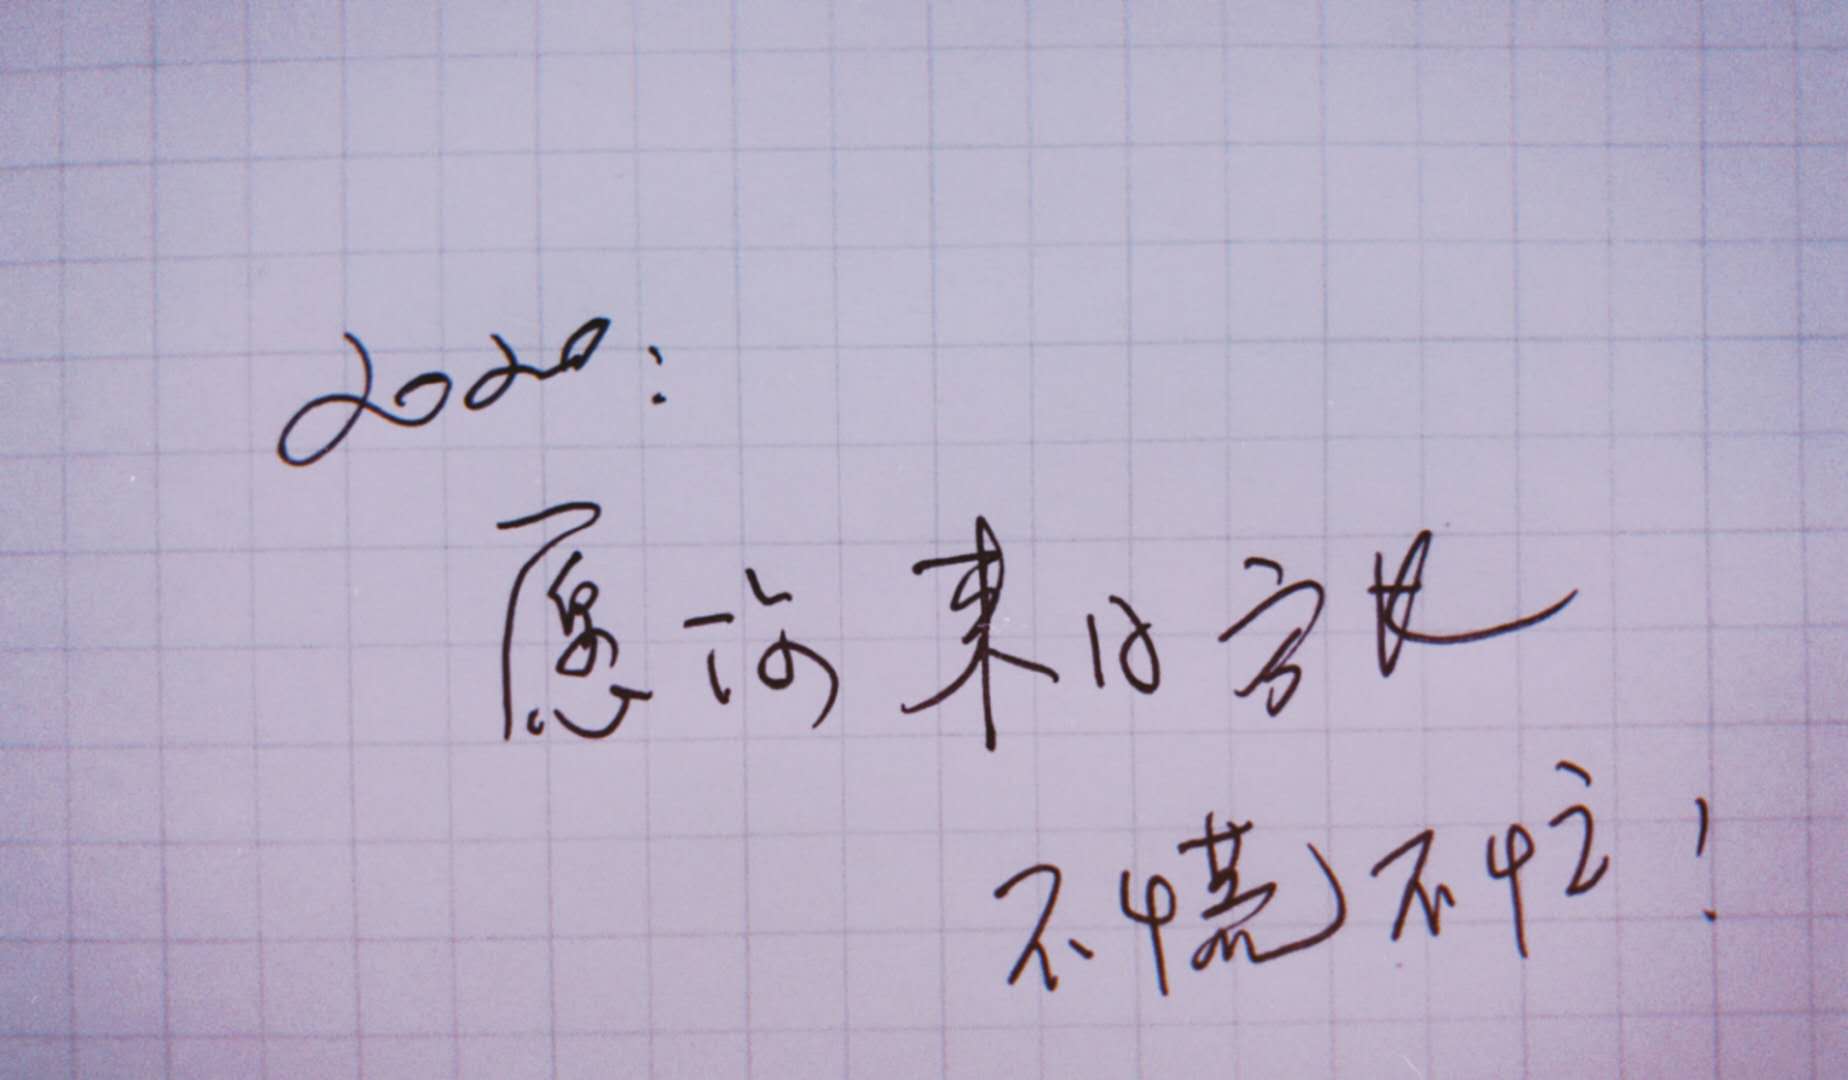 2020:
愿你来日方长
不慌不忙!